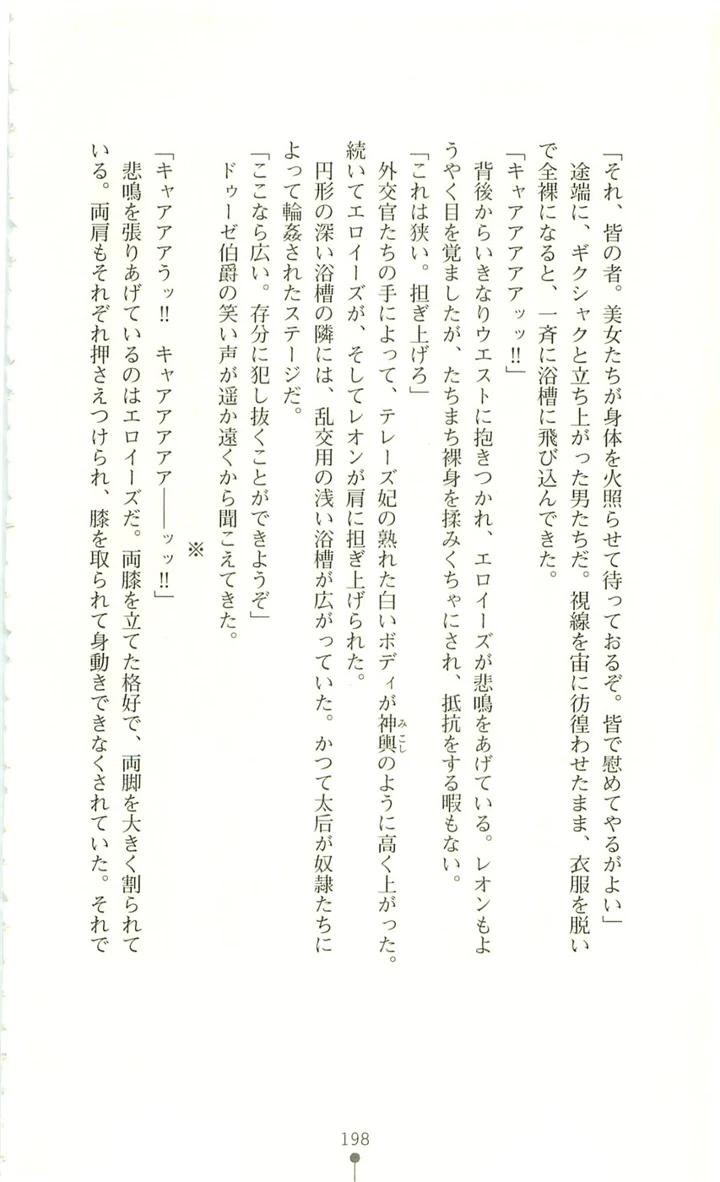 「それ、皆の者。美女たちが身体を火照らせて待っておるぞ。皆で慰めてやるがよい」
途端に、ギクシャクと立ち上がった男たちだ。視線を宙に彷徨わせたまま、衣服を脱い
で全裸になると、一斉に浴槽に飛び込んできた。
「キャアアアアアッッ!!」
背後からいきなりウエストに抱きつかれ、エロイーズが悲鳴をあげている。レオンもよ
うやく目を覚ましたが、たちまち裸身を揉みくちゃにされ、抵抗をする暇もない。
「これは狭い。担ぎ上げろ」
外交官たちの手によって、テレーズ妃の熟れた白いボディが神輿みこしのように高く上がった。
続いてエロイーズが、そしてレオンが肩に担ぎ上げられた。
円形の深い浴槽の隣には、乱交用の浅い浴槽が広がっていた。かつて太后が奴隷たちに
よって輪姦されたステージだ。
「ここなら広い。存分に犯し抜くことができようぞ」
ドゥーゼ伯爵の笑い声が遥か遠くから聞こえてきた。
※
「キャアアアうッ!!　キャアアアアア――ッッ!!」
悲鳴を張りあげているのはエロイーズだ。両膝を立てた格好で、両脚を大きく割られて
いる。両肩もそれぞれ押さえつけられ、膝を取られて身動きできなくされていた。それで
198